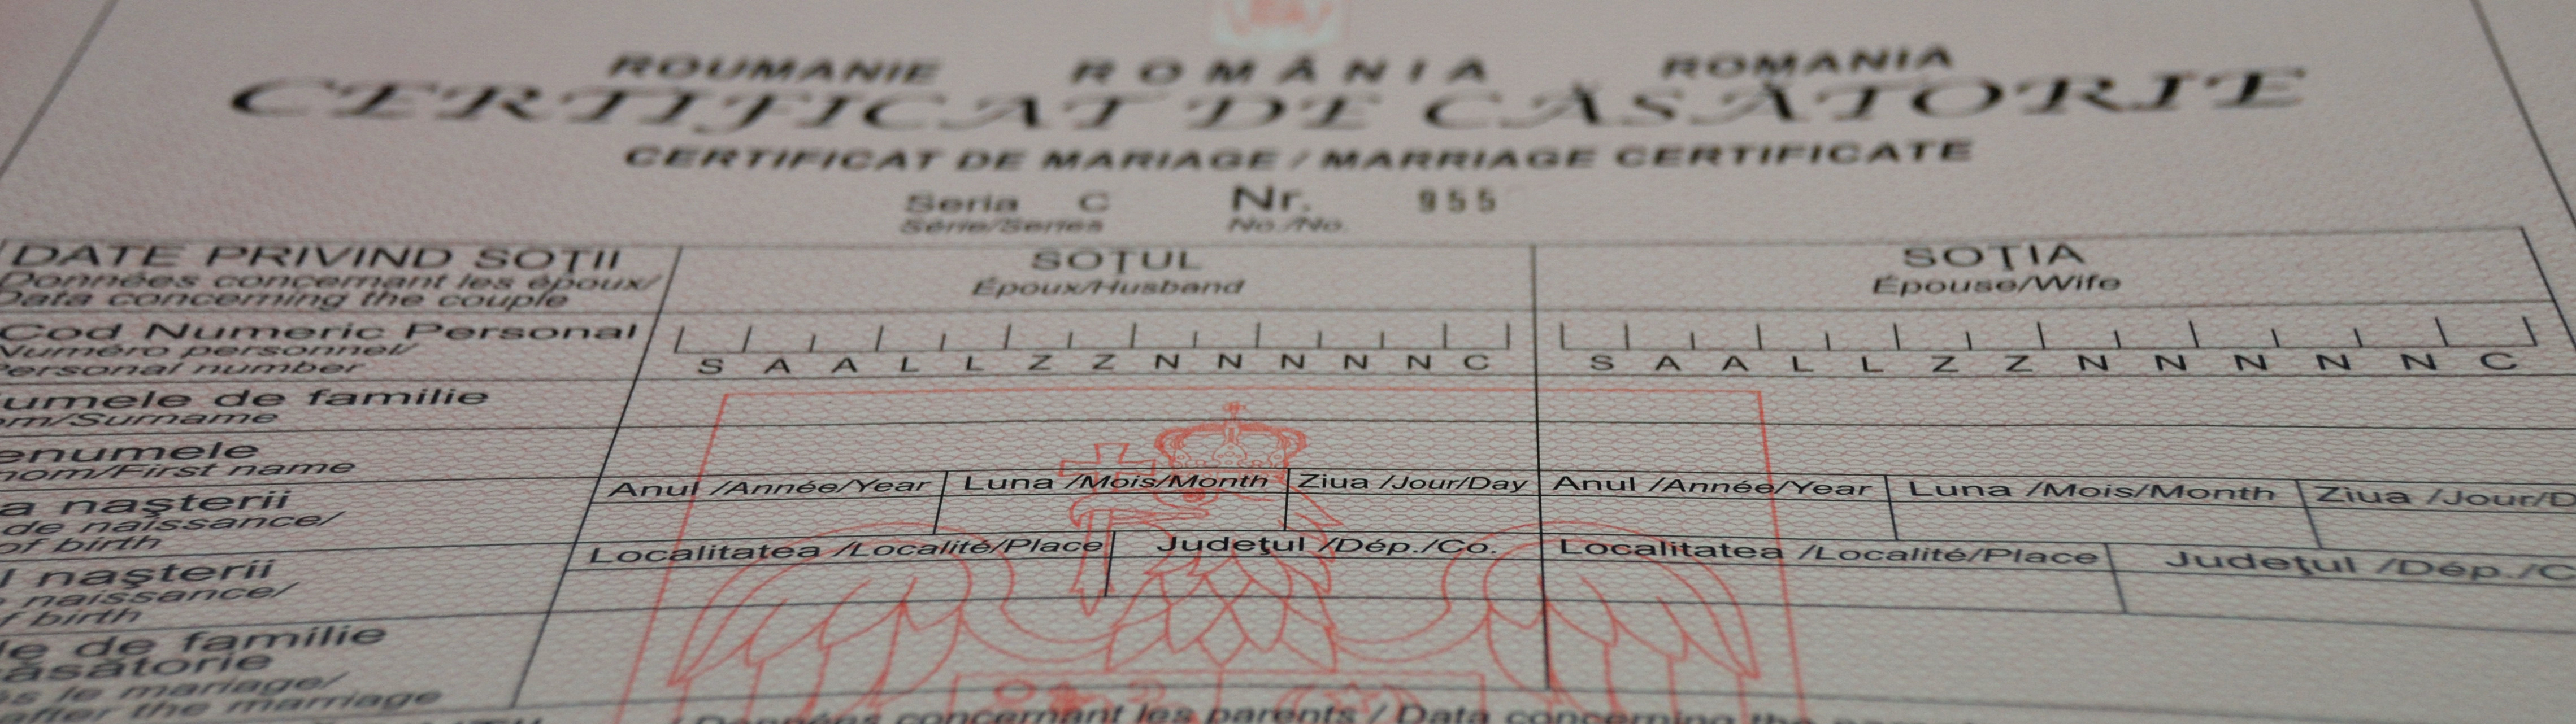 ROUMANIE ROMÂNIA ROMANIA
CERTIFICAT DE CĂSĂTORIE
CERTIFICAT DE MARIAGE / MARRIAGE CERTIFICATE
Seria C Nr. 955
Série/Series No./No.
DATE PRIVIND SOŢII SOŢUL SOŢIA
Données concernant les époux/ Époux/Husband Épouse/Wife
Data concerning the couple
Cod Numeric Personal
Numéro personnel/
Personal number S A A L L Z Z N N N N N C S A A L L Z Z N N N N N C
umele de familie
om/Surname
enumele
nom/First name
Anul /Année/Year Luna /Mois/Month Ziua /Jour/Day Anul /Année/Year Luna /Mois/Month Ziua /Jour/D
a naşterii
de naissance/
of birth
Localitatea /Localité/Place Judeţul /Dép./Co. Localitatea /Localité/Place Judeţul /Dép./C
l naşterii
naissance/
f birth
le de familie
ăsătorie
s le mariage/
after the marriage
Données concernant les parents / Data concerning the